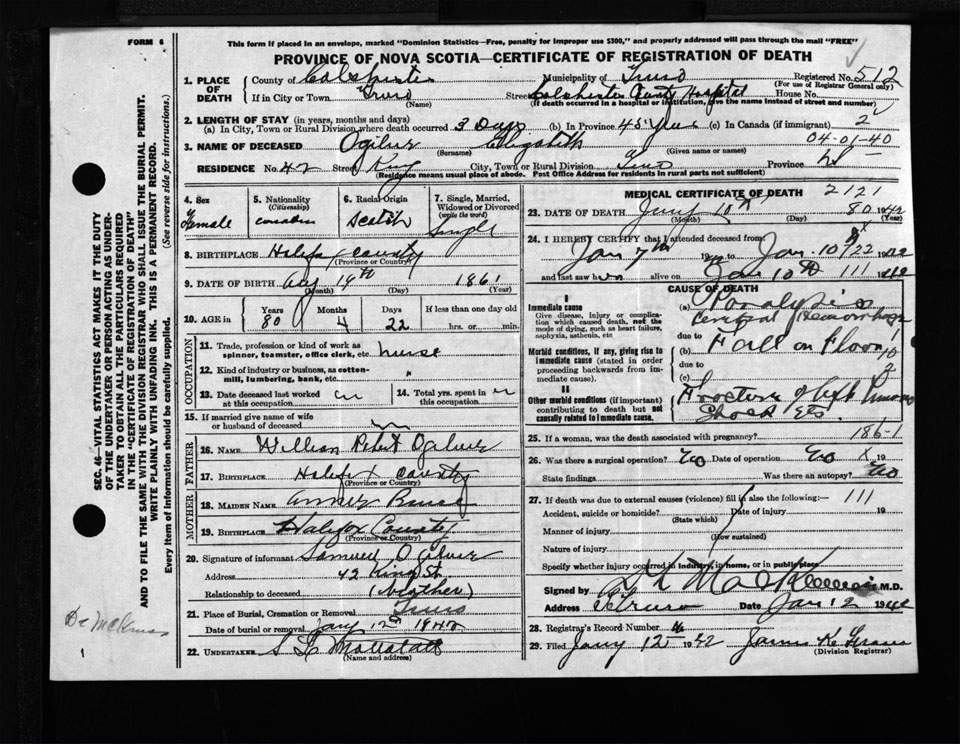 FORM 6
This form if placed in an envelope, marked "Dominion Statistics—Free, penalty for improper use $300," and properly addressed will pass through the mail "FREE"
PROVINCE OF NOVA SCOTIA—CERTIFICATE OF REGISTRATION OF DEATH
1. PLACE OF DEATH County of Colchester Municipality of Truro Registered No. 512
(For use of Registrar General only)
If in City or Town Truro (Name) Street Colchester County Hospital House No.
(If death occurred in a hospital or institution, give the name instead of street and number)
2. LENGTH OF STAY (in years, months and days)
(a) In City, Town or Rural Division where death occurred 3 Days (b) In Province 45 Years (c) In Canada (if immigrant) 2
04-01-40
3. NAME OF DECEASED Ogilvie (Surname) Elizabeth (Given name or names)
RESIDENCE No. 42 Street King City, Town or Rural Division Truro Province
(Residence means usual place of abode. Post Office Address for residents in rural parts not sufficient)
4. Sex Female
5. Nationality (Citizenship) Canadian
6. Racial Origin Scotch
7. Single, Married, Widowed or Divorced (write the word) Single
8. BIRTHPLACE Halifax County
(Province or Country)
9. DATE OF BIRTH Aug (Month) 19th (Day) 1861 (Year)
10. AGE in Years 80 Months 4 Days 22 If less than one day old hrs. or min.
OCCUPATION
11. Trade, profession or kind of work as spinner, teamster, office clerk, etc. nurse
12. Kind of industry or business, as cotton-mill, lumbering, bank, etc. "
13. Date deceased last worked at this occupation
14. Total yrs. spent in this occupation
15. If married give name of wife or husband of deceased
FATHER
16. NAME William Robert Ogilvie
17. BIRTHPLACE Halifax County
(Province or Country)
MOTHER
18. MAIDEN NAME
19. BIRTHPLACE Halifax County
(Province or Country)
20. Signature of informant Samuel Ogilvie
Address 42 King St
Relationship to deceased (Brother)
21. Place of Burial, Cremation or Removal Truro
Date of burial or removal Jany 12th 1942
22. UNDERTAKER
(Name and address)
MEDICAL CERTIFICATE OF DEATH 2121
23. DATE OF DEATH Jany 10th (Month) (Day) 80 1942 (Year)
24. I HEREBY CERTIFY that I attended deceased from:
Jan 7th 19 to Jan 10th 22 1942
and last saw her alive on Jan 10th 111 1942
CAUSE OF DEATH
I
Immediate cause
Give disease, injury or complication which caused death, not the mode of dying, such as heart failure, asphyxia, asthenia, etc
(a) Paralysis
Hemorrhage
due to
Morbid conditions, if any, giving rise to immediate cause (stated in order proceeding backwards from immediate cause).
(b) Fall on Floor 10
due to
(c) 2
II
Other morbid conditions (if important) contributing to death but not causally related to immediate cause.
Fracture of left
Shock
25. If a woman, was the death associated with pregnancy? 186-1
26. Was there a surgical operation? No Date of operation No X 19
State findings Was there an autopsy? No
27. If death was due to external causes (violence) fill in also the following:— 111
Accident, suicide or homicide? (State which) Date of injury 19
Manner of injury (How sustained)
Nature of injury
Specify whether injury occurred in industry, in home, or in public place
Signed by M.D.
Address Truro Date Jan 12 1942
28. Registrar's Record Number 4
29. Filed Jany 12 1942
(Division Registrar)
SEC. 46—VITAL STATISTICS ACT MAKES IT THE DUTY
OF THE UNDERTAKER OR PERSON ACTING AS UNDERTAKER TO OBTAIN ALL THE PARTICULARS REQUIRED
IN THE "CERTIFICATE OF REGISTRATION OF DEATH"
AND TO FILE THE SAME WITH THE DIVISION REGISTRAR WHO SHALL ISSUE THE BURIAL PERMIT.
WRITE PLAINLY WITH UNFADING INK. THIS IS A PERMANENT RECORD.
Every item of information should be carefully supplied. (See reverse side for instructions.)
1